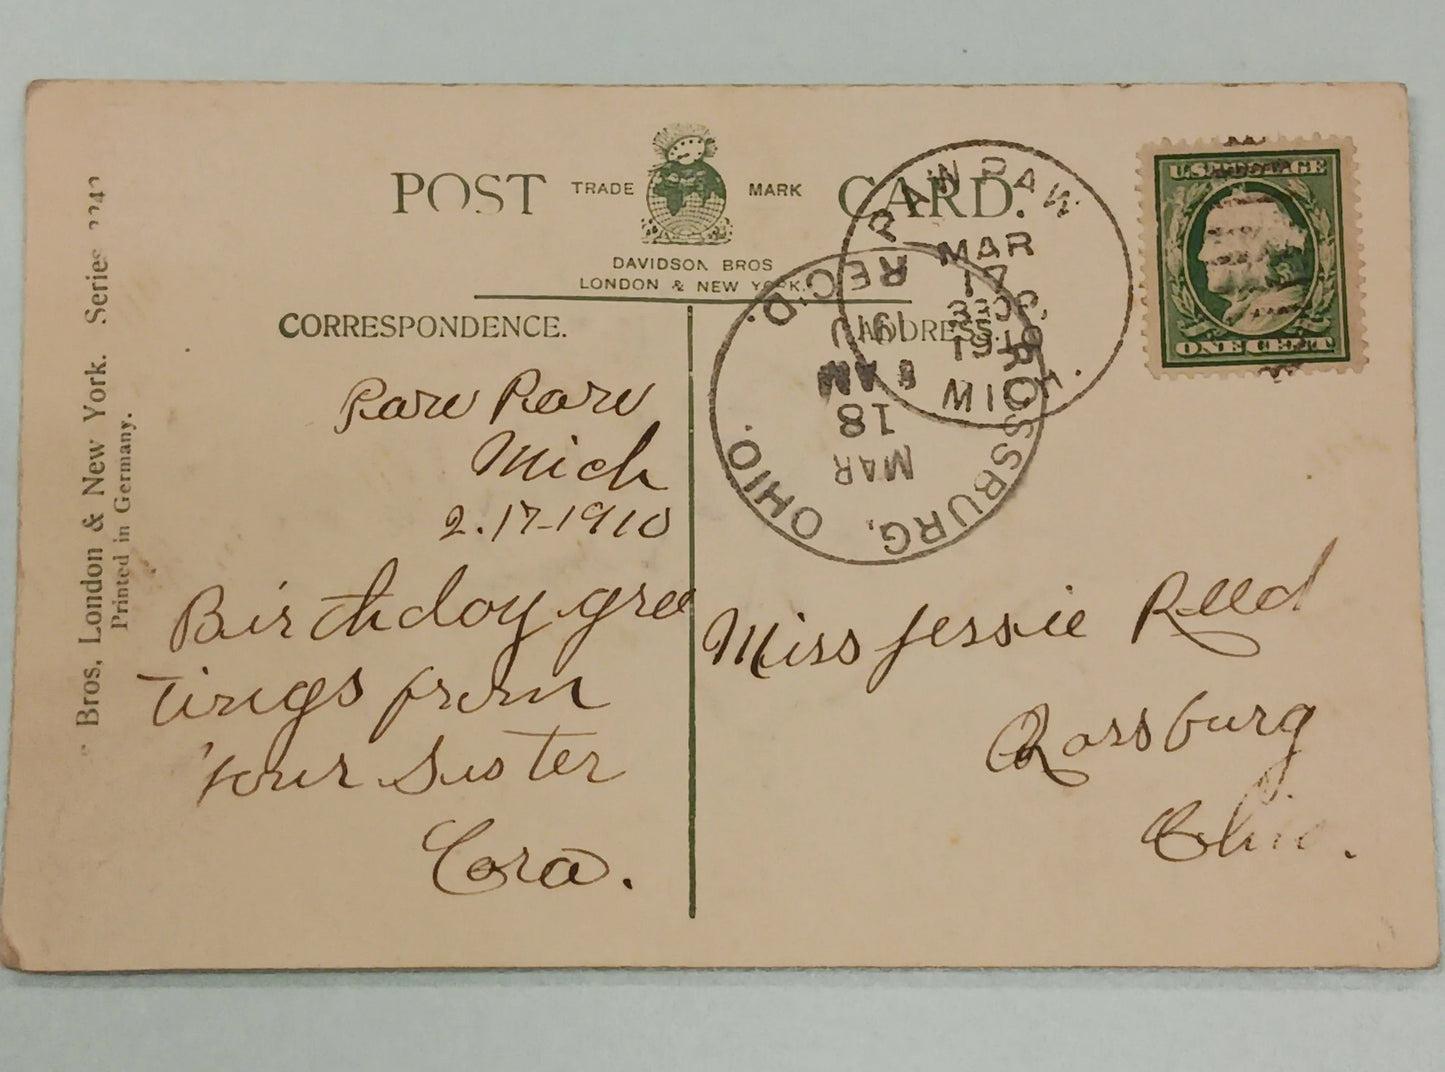 POST CARD.
TRADE MARK
DAVIDSON BROS
LONDON & NEW YORK.
CORRESPONDENCE.
ADDRESS.
Bros, London & New York. Series
Printed in Germany.
U.S. POSTAGE
ONE CENT
PAW PAW
MAR
17
1910
MICH.
ROSSBURG, OHIO.
REC'D.
MAR
18
AM
Paw Paw
Mich
2.17-1910
Birthday gree
tings from
Your Sister
Cora.
Miss Jessie Reed
Rossburg
Ohio.